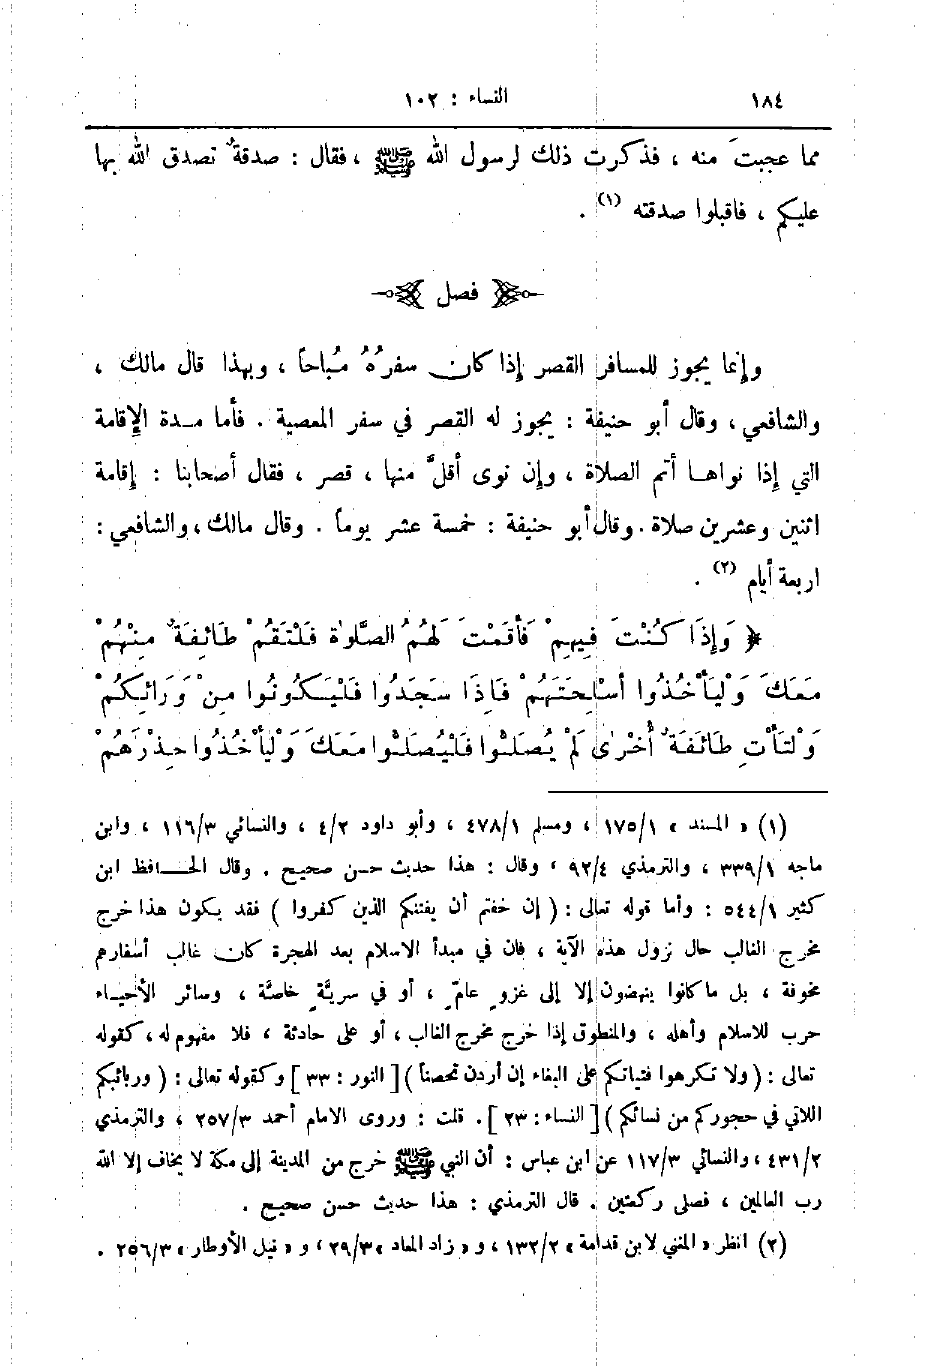 ١٨٤ النساء : ١٠٢
مما عجبتَ منه ، فذكرت ذلك لرسول الله ﷺ ، فقال : صدقةٌ تصدق الله بها
عليكم ، فاقبلوا صدقته (١) .
فصل
وإنما يجوز للمسافر القصر إذا كان سفرُهُ مُباحاً ، وبهذا قال مالك ،
والشافعي ، وقال أبو حنيفة : يجوز له القصر في سفر المعصية . فأما مـدة الإقامة
التي إذا نواهـا أتم الصلاة ، وإن نوى أقلَّ منها ، قصر ، فقال أصحابنا : إقامة
اثنين وعشرين صلاة . وقال أبو حنيفة : خمسة عشر يوماً . وقال مالك ، والشافعي :
اربعة أيام (٢) .
﴿ وَإِذَا كُنْتَ فِيهِمْ فَأَقَمْتَ لَهُمُ الصَّلَوٰةَ فَلْتَقُمْ طَائِفَةٌ مِنْهُمْ
مَعَكَ وَلْيَأْخُذُوا أَسْلِحَتَهُمْ فَإِذَا سَجَدُوا فَلْيَكُونُوا مِنْ وَرَائِكُمْ
وَلْتَأْتِ طَائِفَةٌ أُخْرٰى لَمْ يُصَلُّوا فَلْيُصَلُّوا مَعَكَ وَلْيَأْخُذُوا حِذْرَهُمْ
(١) « المسند » ١٧٥/١ ، ومسلم ٤٧٨/١ ، وأبو داود ٤/٢ ، والنسائي ١١٦/٣ ، وابن
ماجه ٣٣٩/١ ، والترمذي ٩٢/٤ ، وقال : هذا حديث حسن صحيح . وقال الحـافظ ابن
كثير ٥٤٤/١ : وأما قوله تعالى : ( إن خفتم أن يفتنكم الذين كفروا ) فقد يكون هذا خرج
مخرج الغالب حال نزول هذه الآية ، فان في مبدأ الاسلام بعد الهجرة كان غالب أسفارهم
مخوفة ، بل ما كانوا ينهضون إلا إلى غزوٍ عامٍّ ، أو في سريَّةٍ خاصَّة ، وسائر الأحيـاء
حرب للاسلام وأهله ، والمنطوق إذا خرج مخرج الغالب ، أو على حادثة ، فلا مفهوم له ، كقوله
تعالى : ( ولا تكرهوا فتياتكم على البغاء إن أردن تحصناً ) [ النور : ٣٣ ] وكقوله تعالى : ( وربائبكم
اللاتي في حجوركم من نسائكم ) [ النساء : ٢٣ ] . قلت : وروى الامام أحمد ٢٥٧/٣ ، والترمذي
٤٣١/٢ ، والنسائي ١١٧/٣ عن ابن عباس : أن النبي ﷺ خرج من المدينة إلى مكة لا يخاف إلا الله
رب العالمين ، فصلى ركعتين . قال الترمذي : هذا حديث حسن صحيح .
(٢) انظر « المغني لابن قدامة » ١٣٢/٢ ، و « زاد المعاد » ٢٩/٣ ، و « نيل الأوطار » ٢٥٦/٣ .